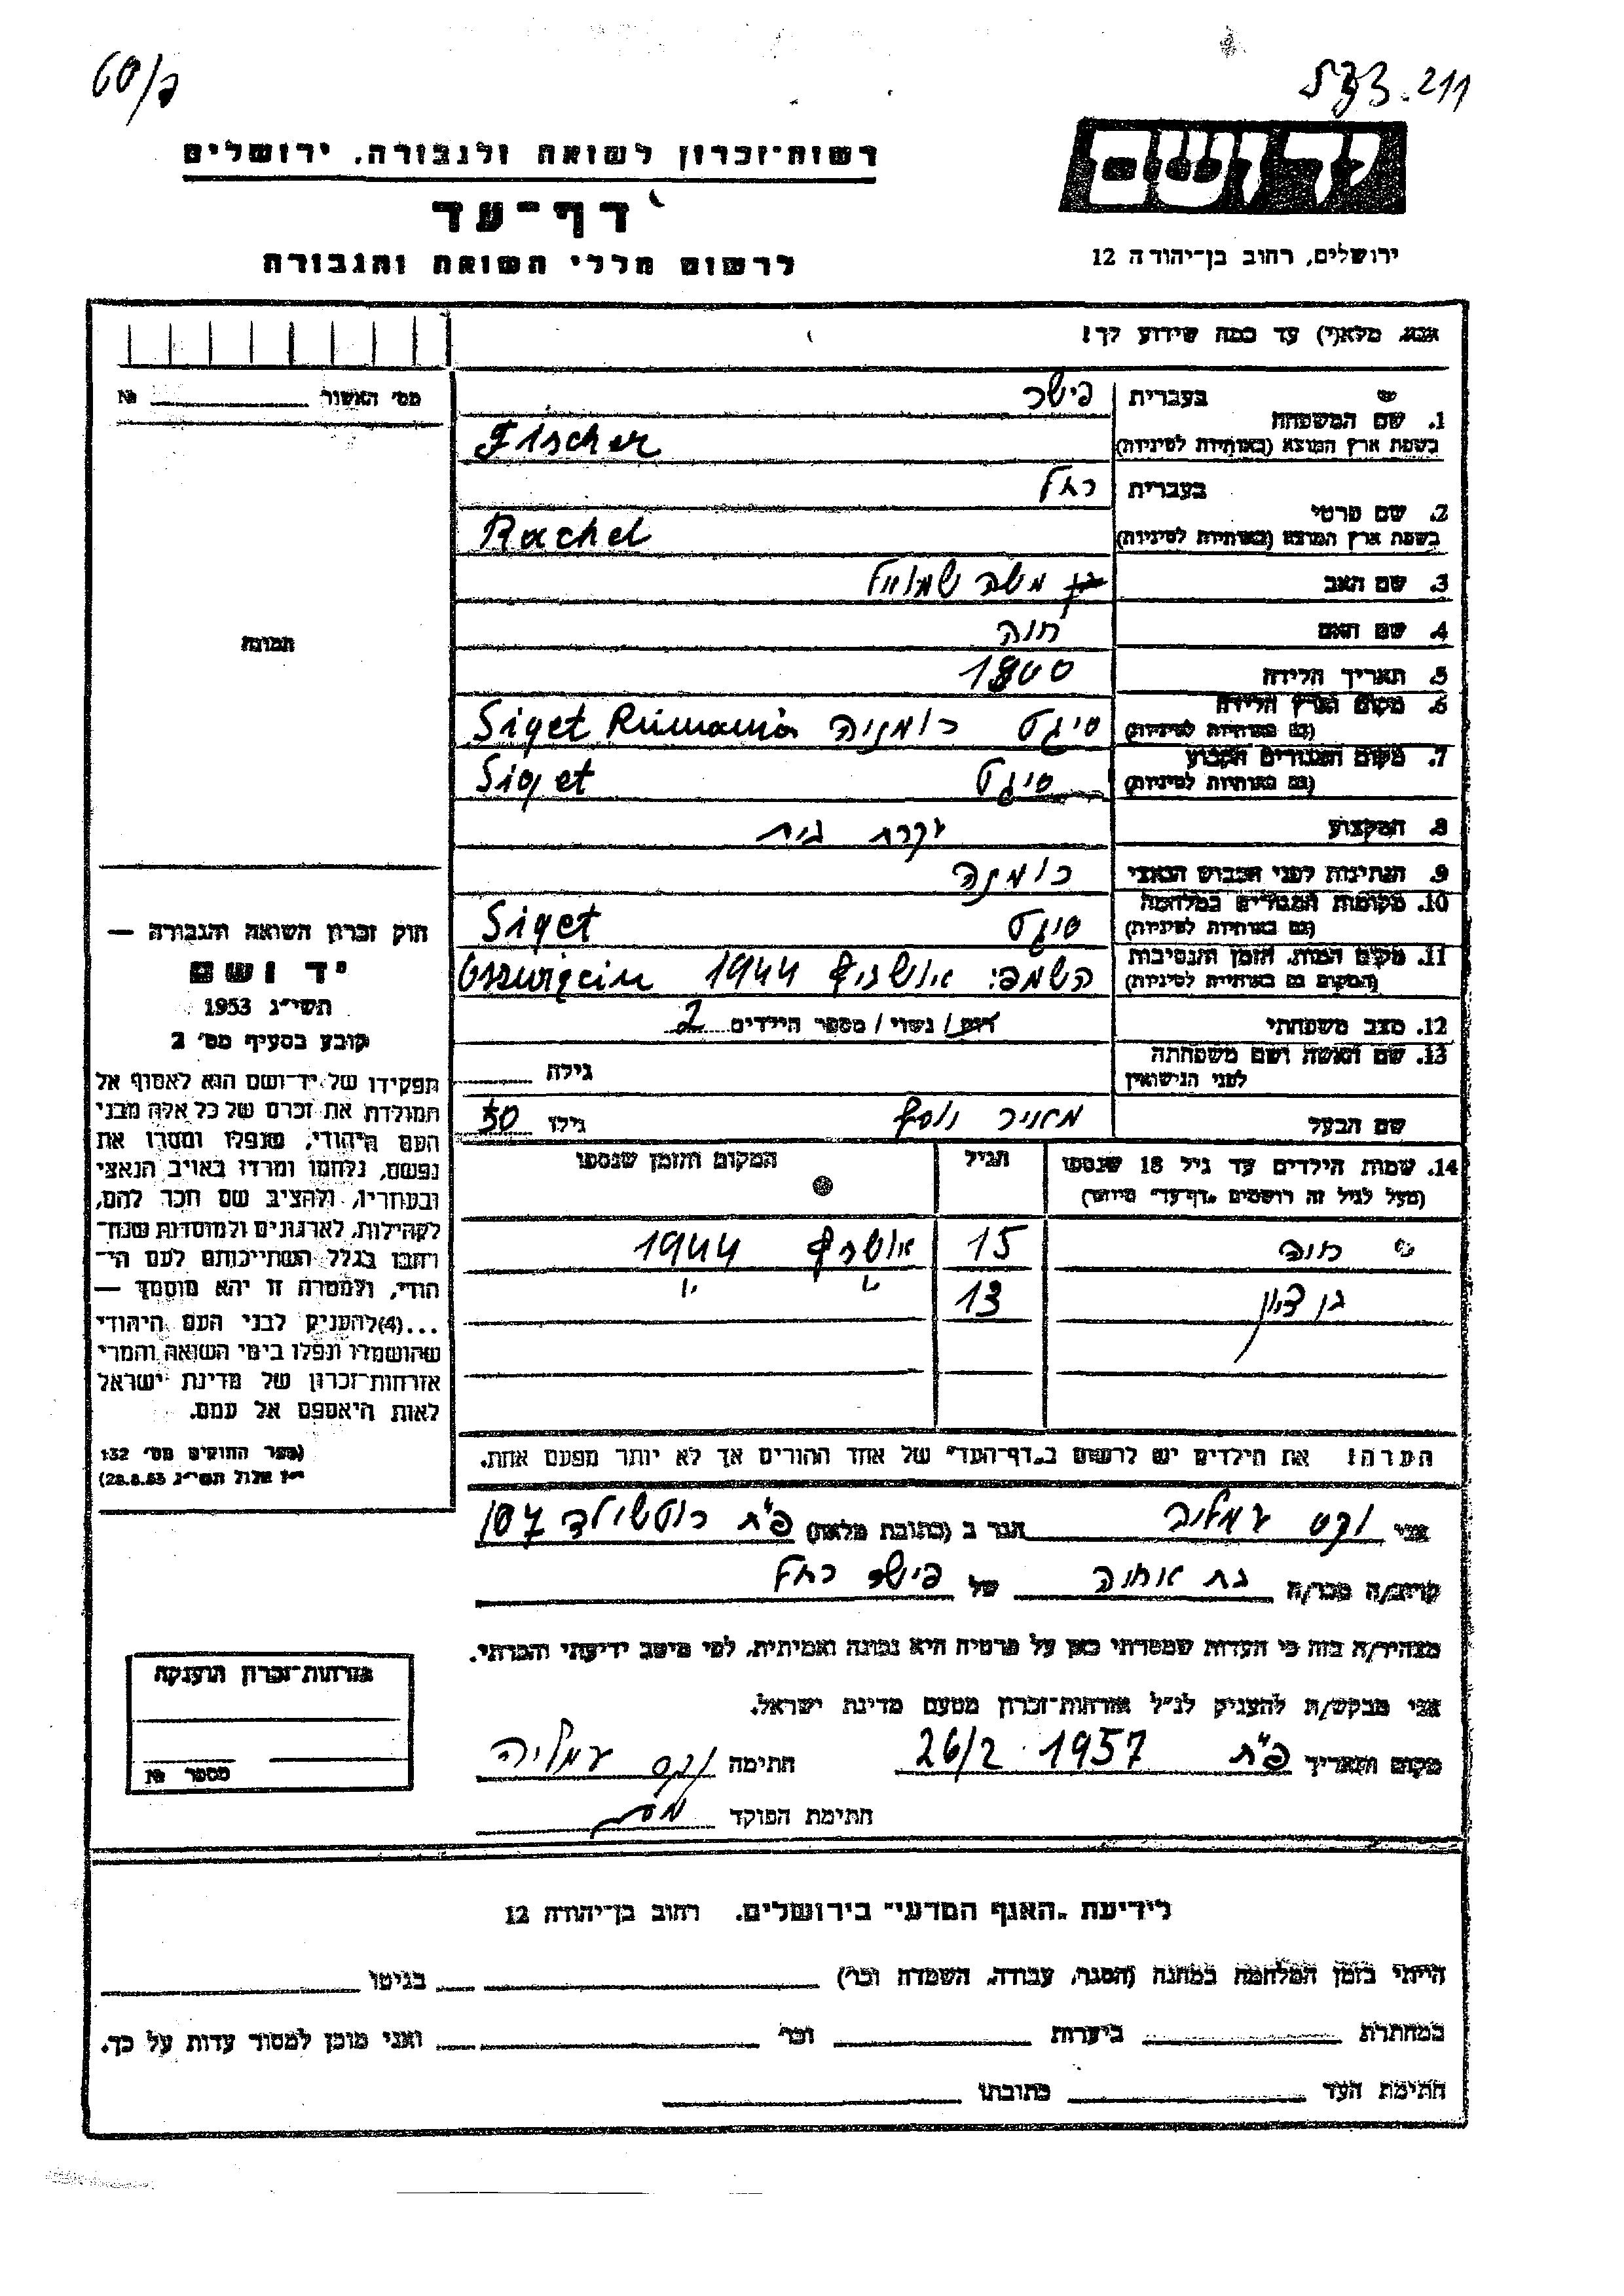 211
רשות־זכרון לשואה ולגבורה, ירושלים
יד ושם
דף־עד
ירושלים, רחוב בן־יהודה 12
לרשום חללי השואה והגבורה
אנא, מלא(י) עד כמה שידוע לך!
מס׳ האשור №
1. שם המשפחה
בעברית פישר
בשפת ארץ המוצא (באותיות לטיניות) Fischer
2. שם פרטי
בעברית רחל
בשפת ארץ המוצא (באותיות לטיניות) Rachel
3. שם האב משה שמואל
4. שם האם חוה
תמונה
5. תאריך הלידה 1900
6. מקום וארץ הלידה
(גם באותיות לטיניות) סיגט רומניה Siget Rumania
7. מקום המגורים הקבוע
(גם באותיות לטיניות) סיגט Siget
8. המקצוע עקרת בית
9. הנתינות לפני הכבוש הנאצי רומניה
10. מקומות המגורים במלחמה
(גם באותיות לטיניות) סיגט Siget
11. מקום המות, הזמן והנסיבות
(המקום גם באותיות לטיניות) 1944
12. מצב משפחתי רווק / נשוי / מספר הילדים 2
13. שם האשה ושם משפחתה
לפני הנישואין גילה
שם הבעל גילו 50
חוק זכרון השואה והגבורה —
יד ושם
תשי״ג 1953
קובע בסעיף מס׳ 2
תפקידו של יד־ושם הוא לאסוף אל
המולדת את זכרם של כל אלה מבני
העם היהודי, שנפלו ומסרו את
נפשם, נלחמו ומרדו באויב הנאצי
ובעוזריו, ולהציב שם וזכר להם,
לקהילות, לארגונים ולמוסדות שנח־
רבו בגלל השתייכותם לעם הי־
הודי, ולמטרה זו יהא מוסמך —
...(4)להעניק לבני העם היהודי
שהושמדו ונפלו בימי השואה והמרי
אזרחות־זכרון של מדינת ישראל
לאות היאספם אל עמם.
(ספר החוקים מס׳ 132
י״ז אלול תשי״ג 28.8.53)
14. שמות הילדים עד גיל 18 שנספו
(מעל לגיל זה רושמים „דף־עד״ מיוחד) הגיל המקום והזמן שנספו
חוה 15 אושויץ 1944
בן ציון 13 " "
הערה: את הילדים יש לרשום ב„דף־העד״ של אחד ההורים אך לא יותר מפעם אחת.
אני וקס עמליה הגר ב (כתובת מלאה) פ״ת רוטשילד 107
קרוב/ה מכר/ה בת אחותה של פישר רחל
מצהיר/ה בזה כי העדות שמסרתי כאן על פרטיה היא נכונה ואמיתית, לפי מיטב ידיעתי והכרתי.
אני מבקש/ת להעניק לנ״ל אזרחות־זכרון מטעם מדינת ישראל.
מקום ותאריך פ״ת 26/2 1957 חתימה וקס עמליה
חתימת הפוקד
אזרחות־זכרון הוענקה
מספר №
לידיעת „האגף המדעי״ בירושלים, רחוב בן־יהודה 12
הייתי בזמן המלחמה במחנה (הסגר, עבודה, השמדה וכו׳) בגיטו
במחתרת ביערות וכו׳ ואני מוכן למסור עדות על כך.
חתימת העד כתובתו